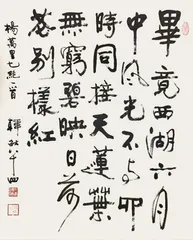 畢竟西湖六月
中風光不与四
時同接天蓮葉
無窮碧映日荷
花別樣紅
楊萬里七絕一首 韓敏八十四